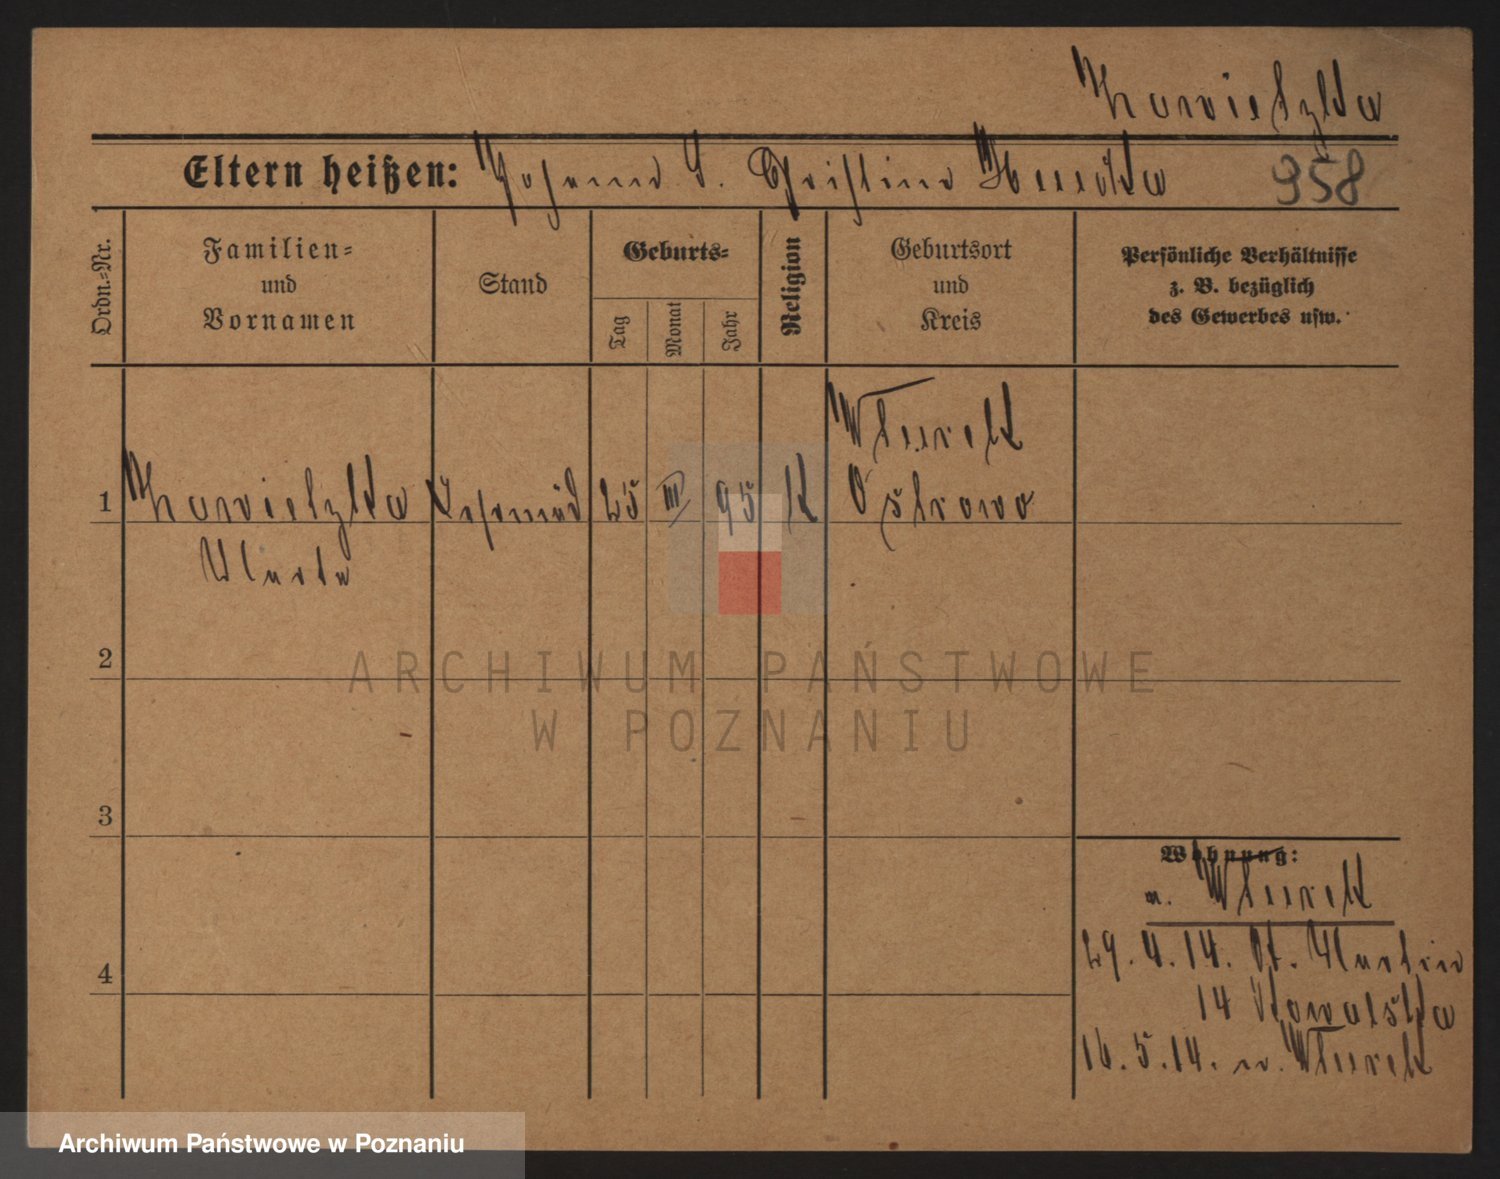 958
Eltern heißen: Johann u. Christine
Ordn.-Nr.
Familien-
und
Vornamen
Stand
Geburts-
Tag
Monat
Jahr
Religion
Geburtsort
und
Kreis
Persönliche Verhältnisse
z. B. bezüglich
des Gewerbes usw.
1
25 III 95 K
Wturek
Ostrowo
2
3
4
Wohnung:
n. Wturek
29. 4. 14. St. Martin
14 Kowalska
16. 5. 14. n. Wturek
ARCHIWUM PAŃSTWOWE
W POZNANIU
Archiwum Państwowe w Poznaniu